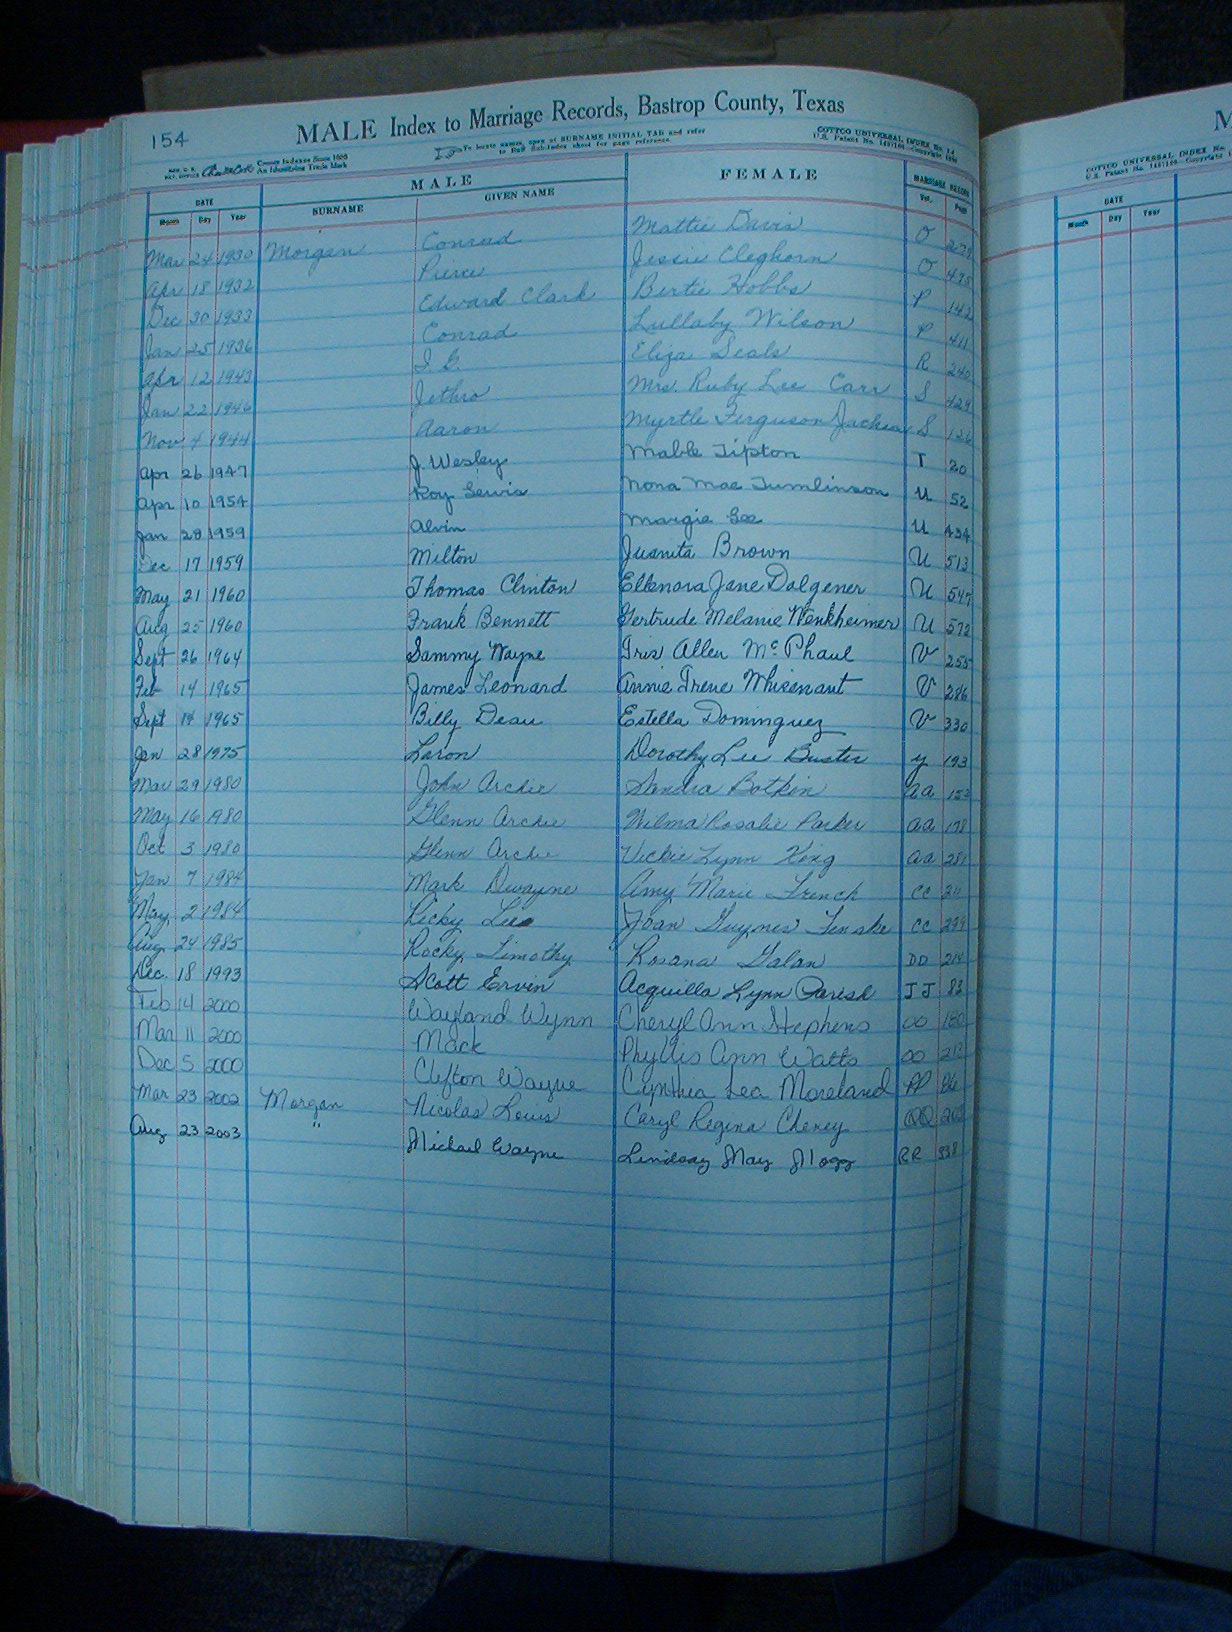 154
MALE Index to Marriage Records, Bastrop County, Texas
To locate names, open at SURNAME INITIAL TAB and refer
to Red Sub-Index sheet for page reference.
COTTCO UNIVERSAL INDEX No. 14
U.S. Patent No. Copyright
County Indexes Since 1888
An Identifying Trade Mark
DATE MALE FEMALE MARRIAGE RECORD
Month Day Year SURNAME GIVEN NAME Vol. Page
Mar 24 1930 Morgan Conrad Mattie Davis O 279
Apr 18 1932 Pierce Jessie Cleghorn O 495
Dec 30 1933 Edward Clark Bertie Hobbs P 142
Jan 25 1936 Conrad Lullaby Wilson P 411
Apr 12 1943 Eliza Seals R 240
Jan 22 1946 Jethro Mrs. Ruby Lee Carr S 429
Nov 4 1944 Aaron Myrtle Ferguson Jackson S 126
Apr 26 1947 J. Wesley Mable Tipton T 20
Apr 10 1954 Roy Lewis Nona Mae Tumlinson U 52
Jan 28 1959 Alvin Margie Lee U 434
Dec 17 1959 Milton Juanita Brown U 513
May 21 1960 Thomas Clinton Ellenora Jane Dolgener U 547
Aug 25 1960 Frank Bennett Gertrude Melanie Wenkheimer U 572
Sept 26 1964 Sammy Wayne Iris Allen McPhaul V 255
Feb 14 1965 James Leonard Annie Irene Whisenant V 286
Sept 14 1965 Billy Dean Estella Dominguez V 330
Jan 28 1975 Laron Dorothy Lee Buster Y 193
Mar 29 1980 John Archie Sandra Botkin AA 153
May 16 1980 Glenn Archie Wilma Rosalie Parker AA 198
Oct 3 1980 Glenn Archie Vickie Lynn King AA 281
Jan 7 1984 Mark Dwayne Amy Marie French CC 211
May 2 1984 Ricky Lee Joan Guynes Fenske CC 294
Aug 24 1985 Rocky Timothy Rosana Galan DD 214
Dec. 18 1993 Scott Ervin Acquilla Lynn Parish JJ 83
Feb 14 2000 Wayland Wynn Cheryl Ann Stephens OO 180
Mar 11 2000 Mack Phyllis Ann Watts OO 212
Dec 5 2000 Clifton Wayne Cynthia Lea Moreland PP
Mar 23 2002 Morgan Nicolas Louis Caryl Regina Cheney QQ
Aug 23 2003 " Michael Wayne Lindsay May Mogg RR 338
M
COTTCO UNIVERSAL INDEX No.
U.S. Patent No. Copyright
DATE
Month Day Year